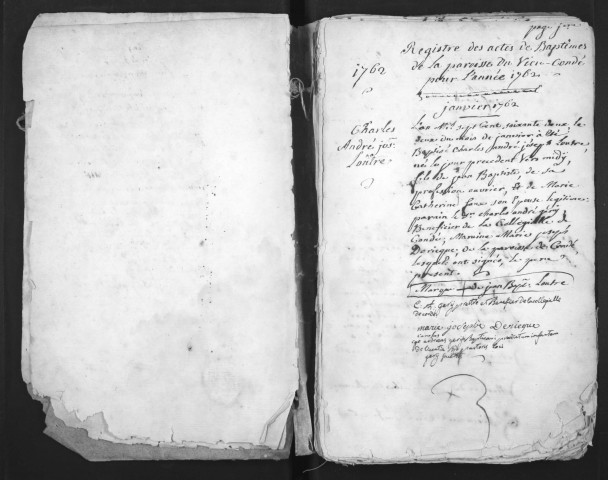 page
Registre des actes de Baptêmes
de la paroisse du Vieu-Condé
pour l'année 1762
1762
janvier 1762
Charles
André jos:
Loutre
L'an Mil sept Cent soixante deux le
deux du mois de janvier a été
Baptisé Charles André joseph Loutre,
né le jour precedent vers midy,
fils de jean Baptiste, de sa
profession ouvrier, et de Marie
Catherine son Epouse legitime:
parain le Sr charles andré
Beneficier de la Collegialle de
Condé; Maraine Marie joseph
Deriegue, de la paroisse de Condé
lesquels ont signés, le pere
present.
Marque de jean Bap: Loutre
prêtre Beneficier de la collegialle
de condé
marie josephe Deriegue
infantem